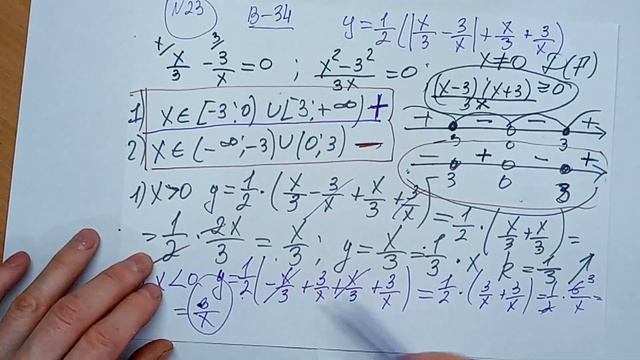 N23 B-34 y=1/2(|x/3-3/x|+x/3+3/x)
x/3 - 3/x = 0 ; (x²-3²)/3x = 0 x≠0
(x-3)(x+3)/3x ≥ 0
1) x∈[-3;0)∪[3;+∞) +
2) x∈(-∞;-3)∪(0;3) −
+ − − +
3 0 3
− + − +
-3 0 3
1) x>0 y=1/2·(x/3-3/x+x/3+3/x)=1/2·(x/3+x/3)=
=1/2·2x/3=x/3; y=x/3=1/3·x k=1/3
x<0 y=1/2(-x/3+3/x+x/3+3/x)=1/2·(3/x+3/x)=1/2·6/x=
=3/x